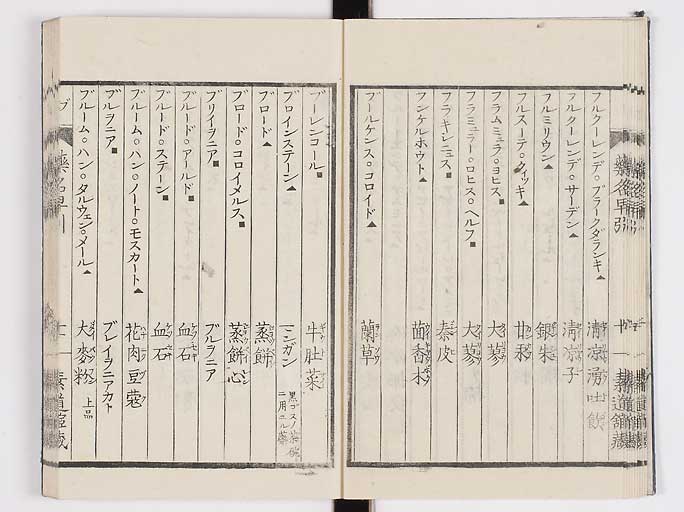 藥名早引
フルクーレンデ。ブラークダランキ▲ 清凉湧吐飲
フルクーレンデ。サーデン▲ 清凉子
フルミリウン▲ 銀朱
フルスーテ。クィッキ▲ 甘秡
フラムミュラ。ヨヒス■ 大蓼
フラミュラー。ロヒス。ヘルフ■ 大蓼
フラキシニュス■ 秦皮
フンケルホウト▲ 茴香木
ブールケンス。コロイド▲ 蘭草
ブーレンコール■ 牛肚菜
ブロインステーン▲ マンガン
ブロード▲ 蒸餅
ブロード。コロイメルス■ 蒸餅心
ブリイヲニア■ ブルヲニア
ブルード。アールド■ 血石
ブルード。ステーン■ 血石
ブルーム。ハン。ノート。モスカート▲ 花肉豆蔲
ブルヲニア■ ブレイヲニアカト
ブルーム。ハン。タルウェン。メール▲ 大麥粉 上品
ブ 藥名早引